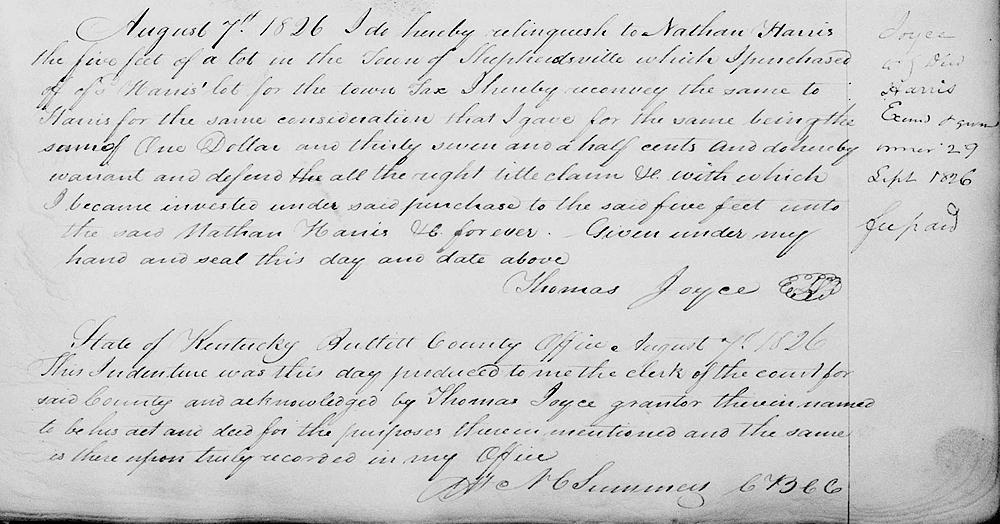 August 7th 1826 I do hereby relinquish to Nathan Harris
the five feet of a lot in the Town of Shepherdsville which I purchased
off of sd Harris' lot for the town Tax I hereby reconvey the same to
Harris for the same consideration that I gave for the same being the
sum of One Dollar and thirty seven and a half cents and do hereby
warrant and defend the all the right title claim &c. with which
I became invested under said purchase to the said five feet unto
the said Nathan Harris &C forever. Given under my
hand and seal this day and date above
Thomas Joyce
State of Kentucky Bullitt County Office August 7th 1826
This Indenture was this day produced to me the clerk of the court for
said County and acknowledged by Thomas Joyce grantor therein named
to be his act and deed for the purposes therein mentioned and the same
is there upon truly recorded in my Office
Att N C Summers C B C C
Joyce
Deed
Harris
Examd &
owner 29
Sept 1826
fee paid